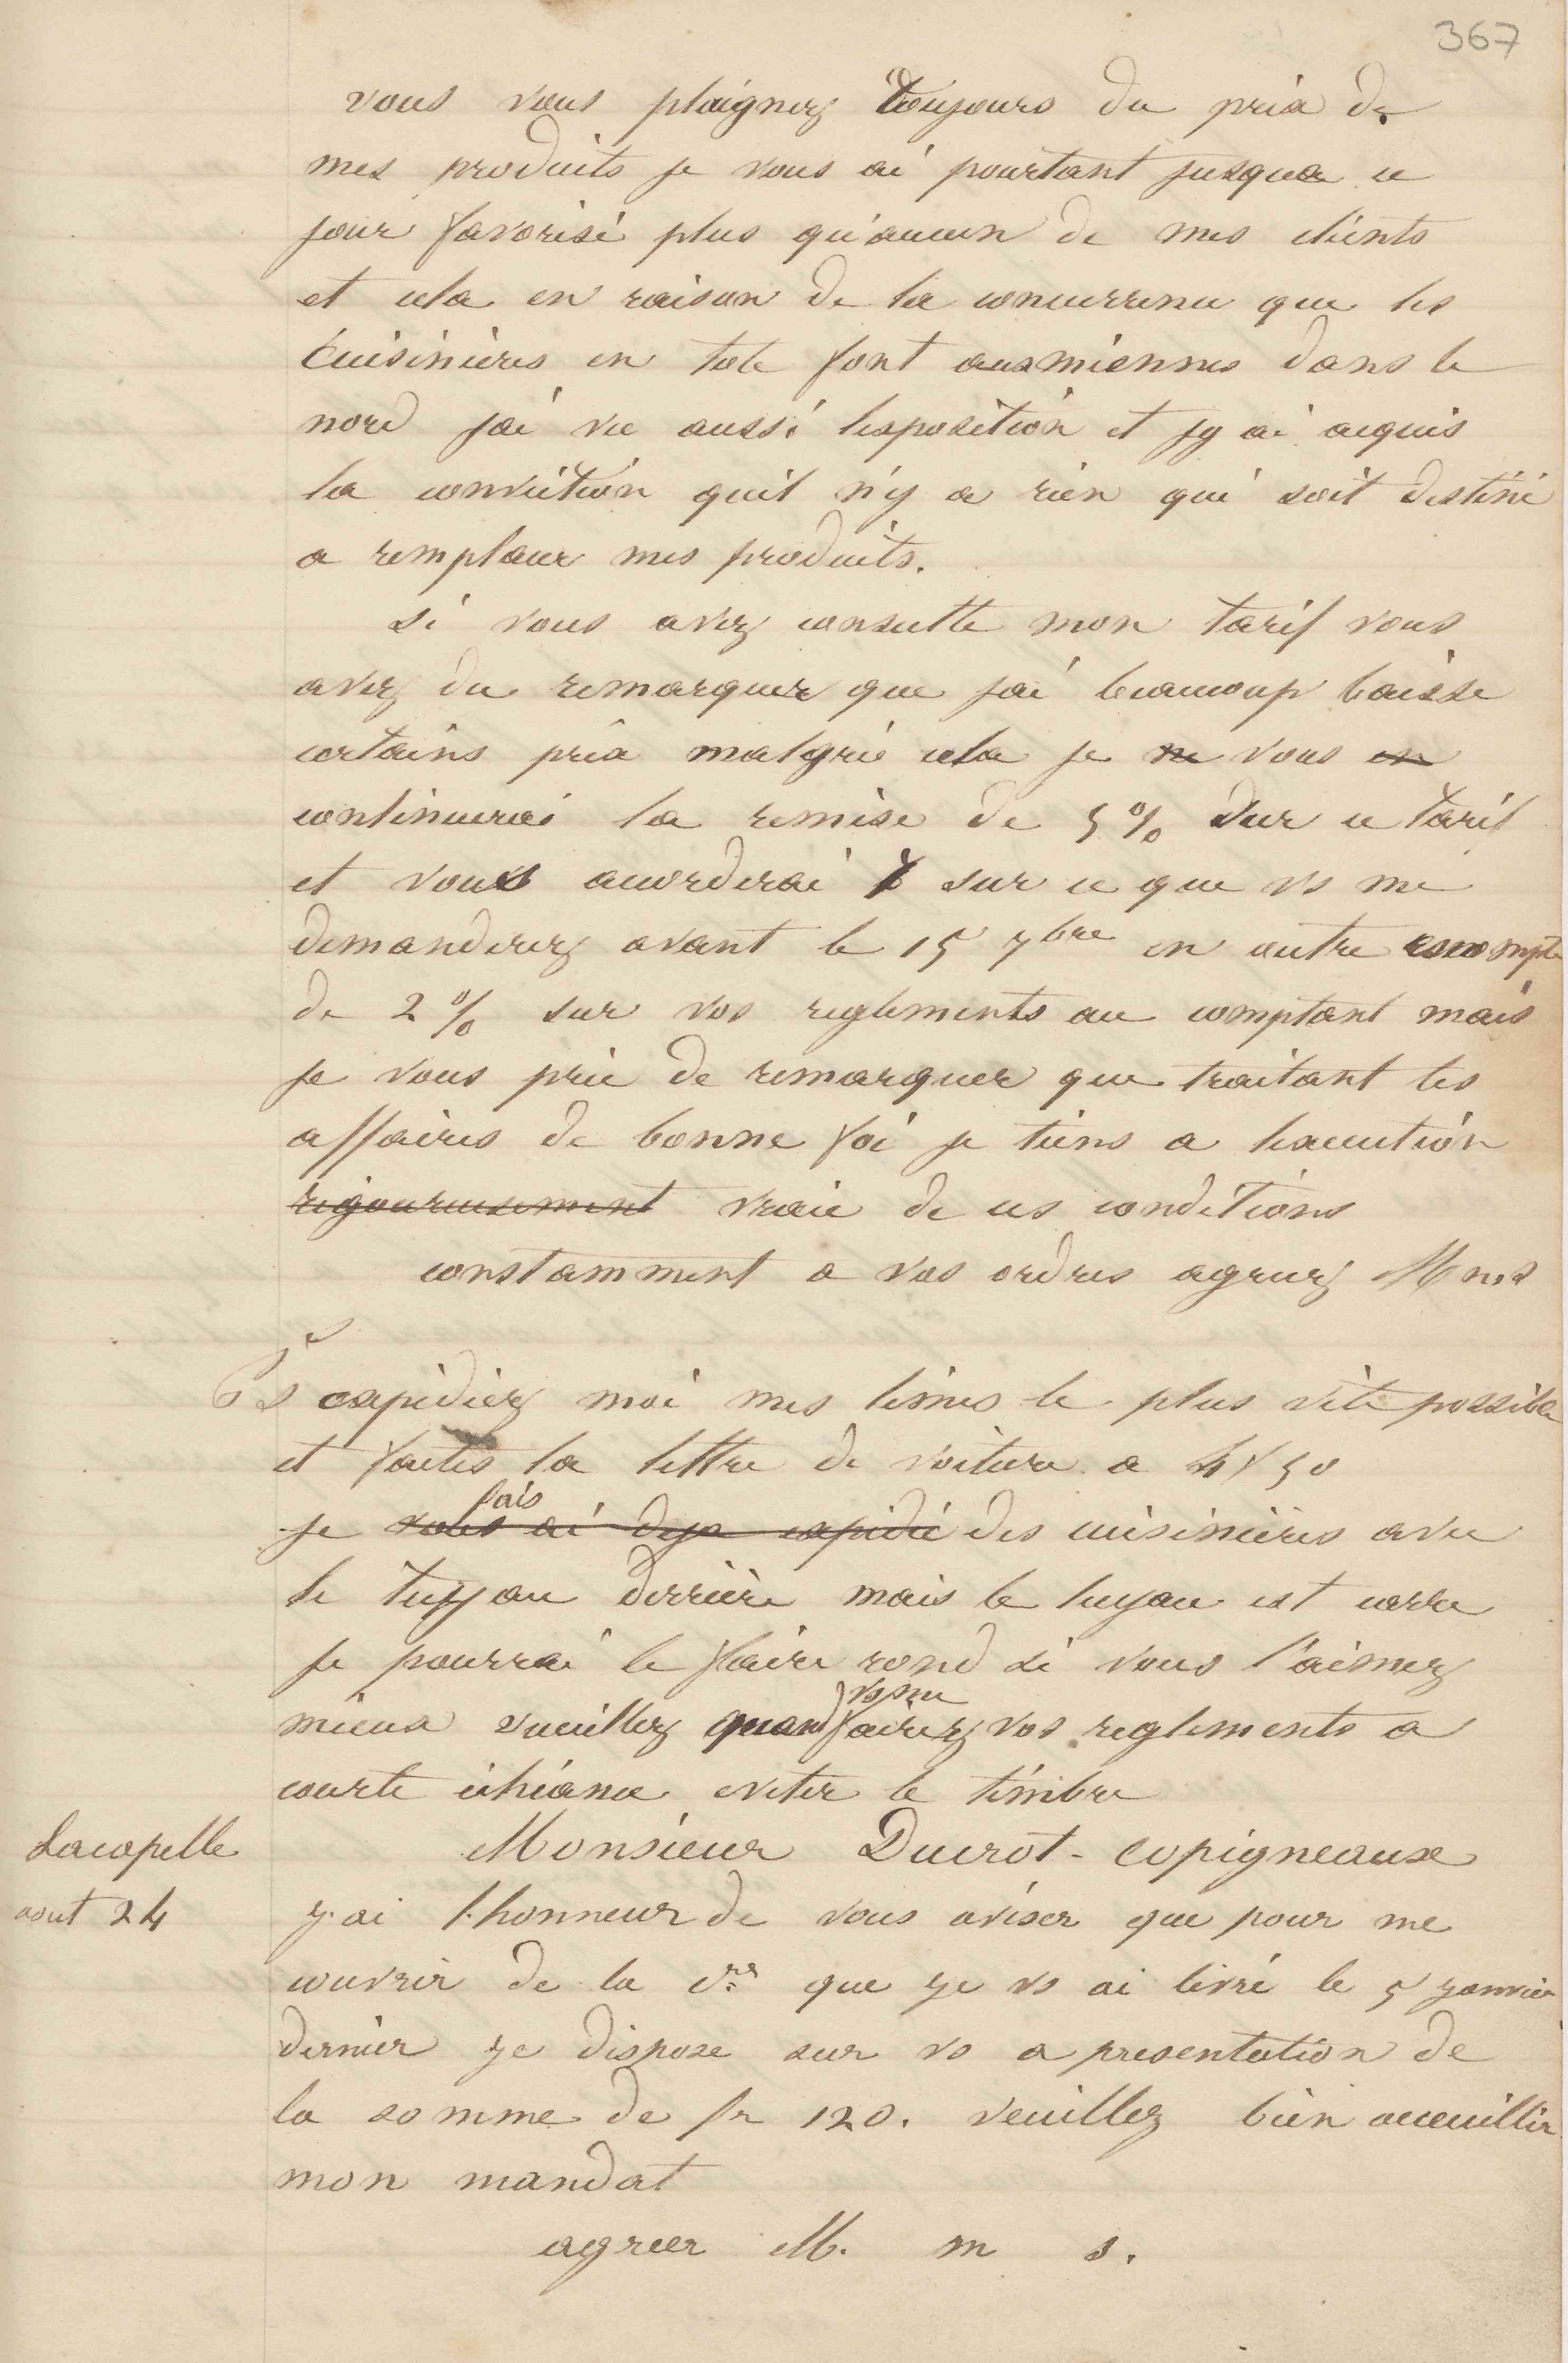 367
vous vous plaignez toujours du prix de
mes produits je vous ai pourtant jusqua ce
jour favorisé plus qu'aucun de mes clients
et cela en raison de la concurrence que les
cuisinières en tole font aux miennes dans le
nord jai vu aussi lexposition et jy ai acquis
la conviction quil n'y a rien qui soit destiné
a remplacer mes produits.
si vous avez consulté mon tarif vous
avez du remarquer que jai beaucoup baissé
certains prix malgré cela je ne vous en
continuerai la remise de 5 % sur ce tarif
et vous accorderai sur ce que vs me
demanderez avant le 15 7bre en outre escompte
de 2 % sur vos reglements au comptant mais
je vous prie de remarquer que traitant les
affaires de bonne foi je tiens a lexecution
rigoureusement vraie de ces conditions
constamment a vos ordres agreez M n s
PS expédiez moi mes limes le plus vite possible
et faites la lettre de voiture a 4f50
fais
je vous ai deja expédié des cuisinières avec
le tuyau derrière mais le tuyau est carre
je pourrai le faire rond si vous l'aimez
vs me
mieux veuillez quand fairez vos reglements a
courte échéance eviter le timbre
Lacapelle
aout 24
Monsieur Ducrot-Copigneaux
j.ai l.honneur de vous aviser que pour me
couvrir de la Cre que je vs ai livré le 5 janvier
dernier je dispose sur vs a presentation de
la somme de fr 120. veuillez bien acceuillir
mon mandat
agreer M. m s.